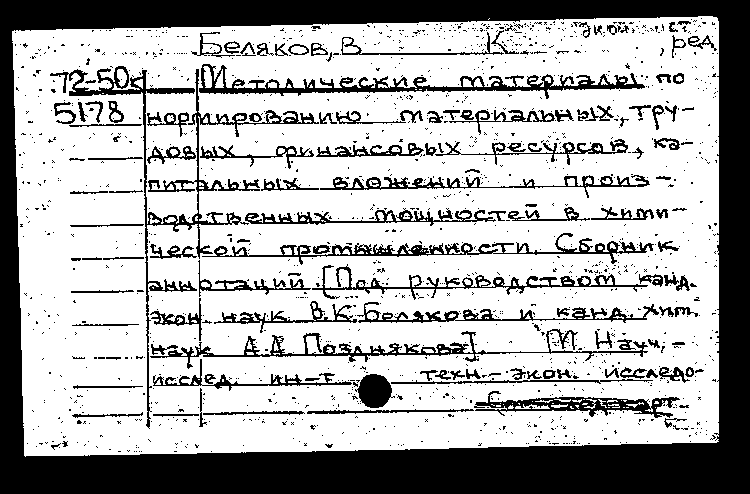 экон. лет
Беляков, В К , ред
72-50к Методические материалы по
5178 нормированию материальных, тру-
довых, финансовых ресурсов, ка-
питальных вложений и произ-
водственных мощностей в хими-
ческой промышленности. Сборник
аннотаций. [Под руководством канд.
экон. наук В.К. Белякова и канд. хим.
наук А.А. Позднякова]. М., Науч.-
исслед. ин-т техн.-экон. исследо-
См. след. карт.